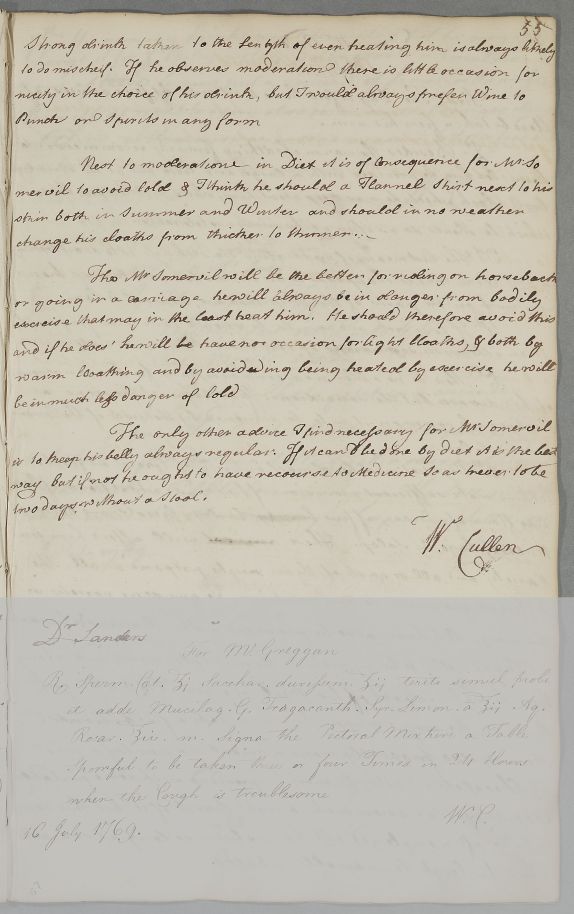 55
Strong drink taken to the Length of even heating him is always likely
to do mischeif. If he observes moderation there is little occasion for
nicety in the choice of his drink, but I would always prefer Wine to
Punch or Spirits in any form
Next to moderatione in Diet it is of Consequence for Mr. So
mervil to avoid Cold & I think he should a Flannel Shirt next to his
skin both in Summer and Winter and should in no weather
change his cloaths from thicker to thinner...
Tho Mr Somervil will be the better for riding on horseback
or going in a carriage he will always be in danger from bodily
exercise that may in the least heat him. He should therefore avoid this
and if he does he will be have no occasion for light Cloaths, & both by
warm Cloathing and by avoideding being heated by exercise he will
be in much less danger of Cold
The only other advice I find necessary for Mr. Somervil
is to keep his belly always regular. If it can be done by diet it is the best
way but if not he ought to have recourse to Medicine so as never to be
two days without a Stool.
Wm. Cullen
Dr Sanders
For Mr Greggan
R. Sperm. Cet. ʒij Sacchar. duressim. ʒij terite simul probe
et adde Mucilag. G. Tragacanth. Syr. Limon. a ʒij Aq.
Rosar. ʒiv. m. Signa the Pectoral Mixture a Table
Spoonful to be taken three or four Times in 24 Hours
when the Cough is troublesome
W. C.
16 July 1769.